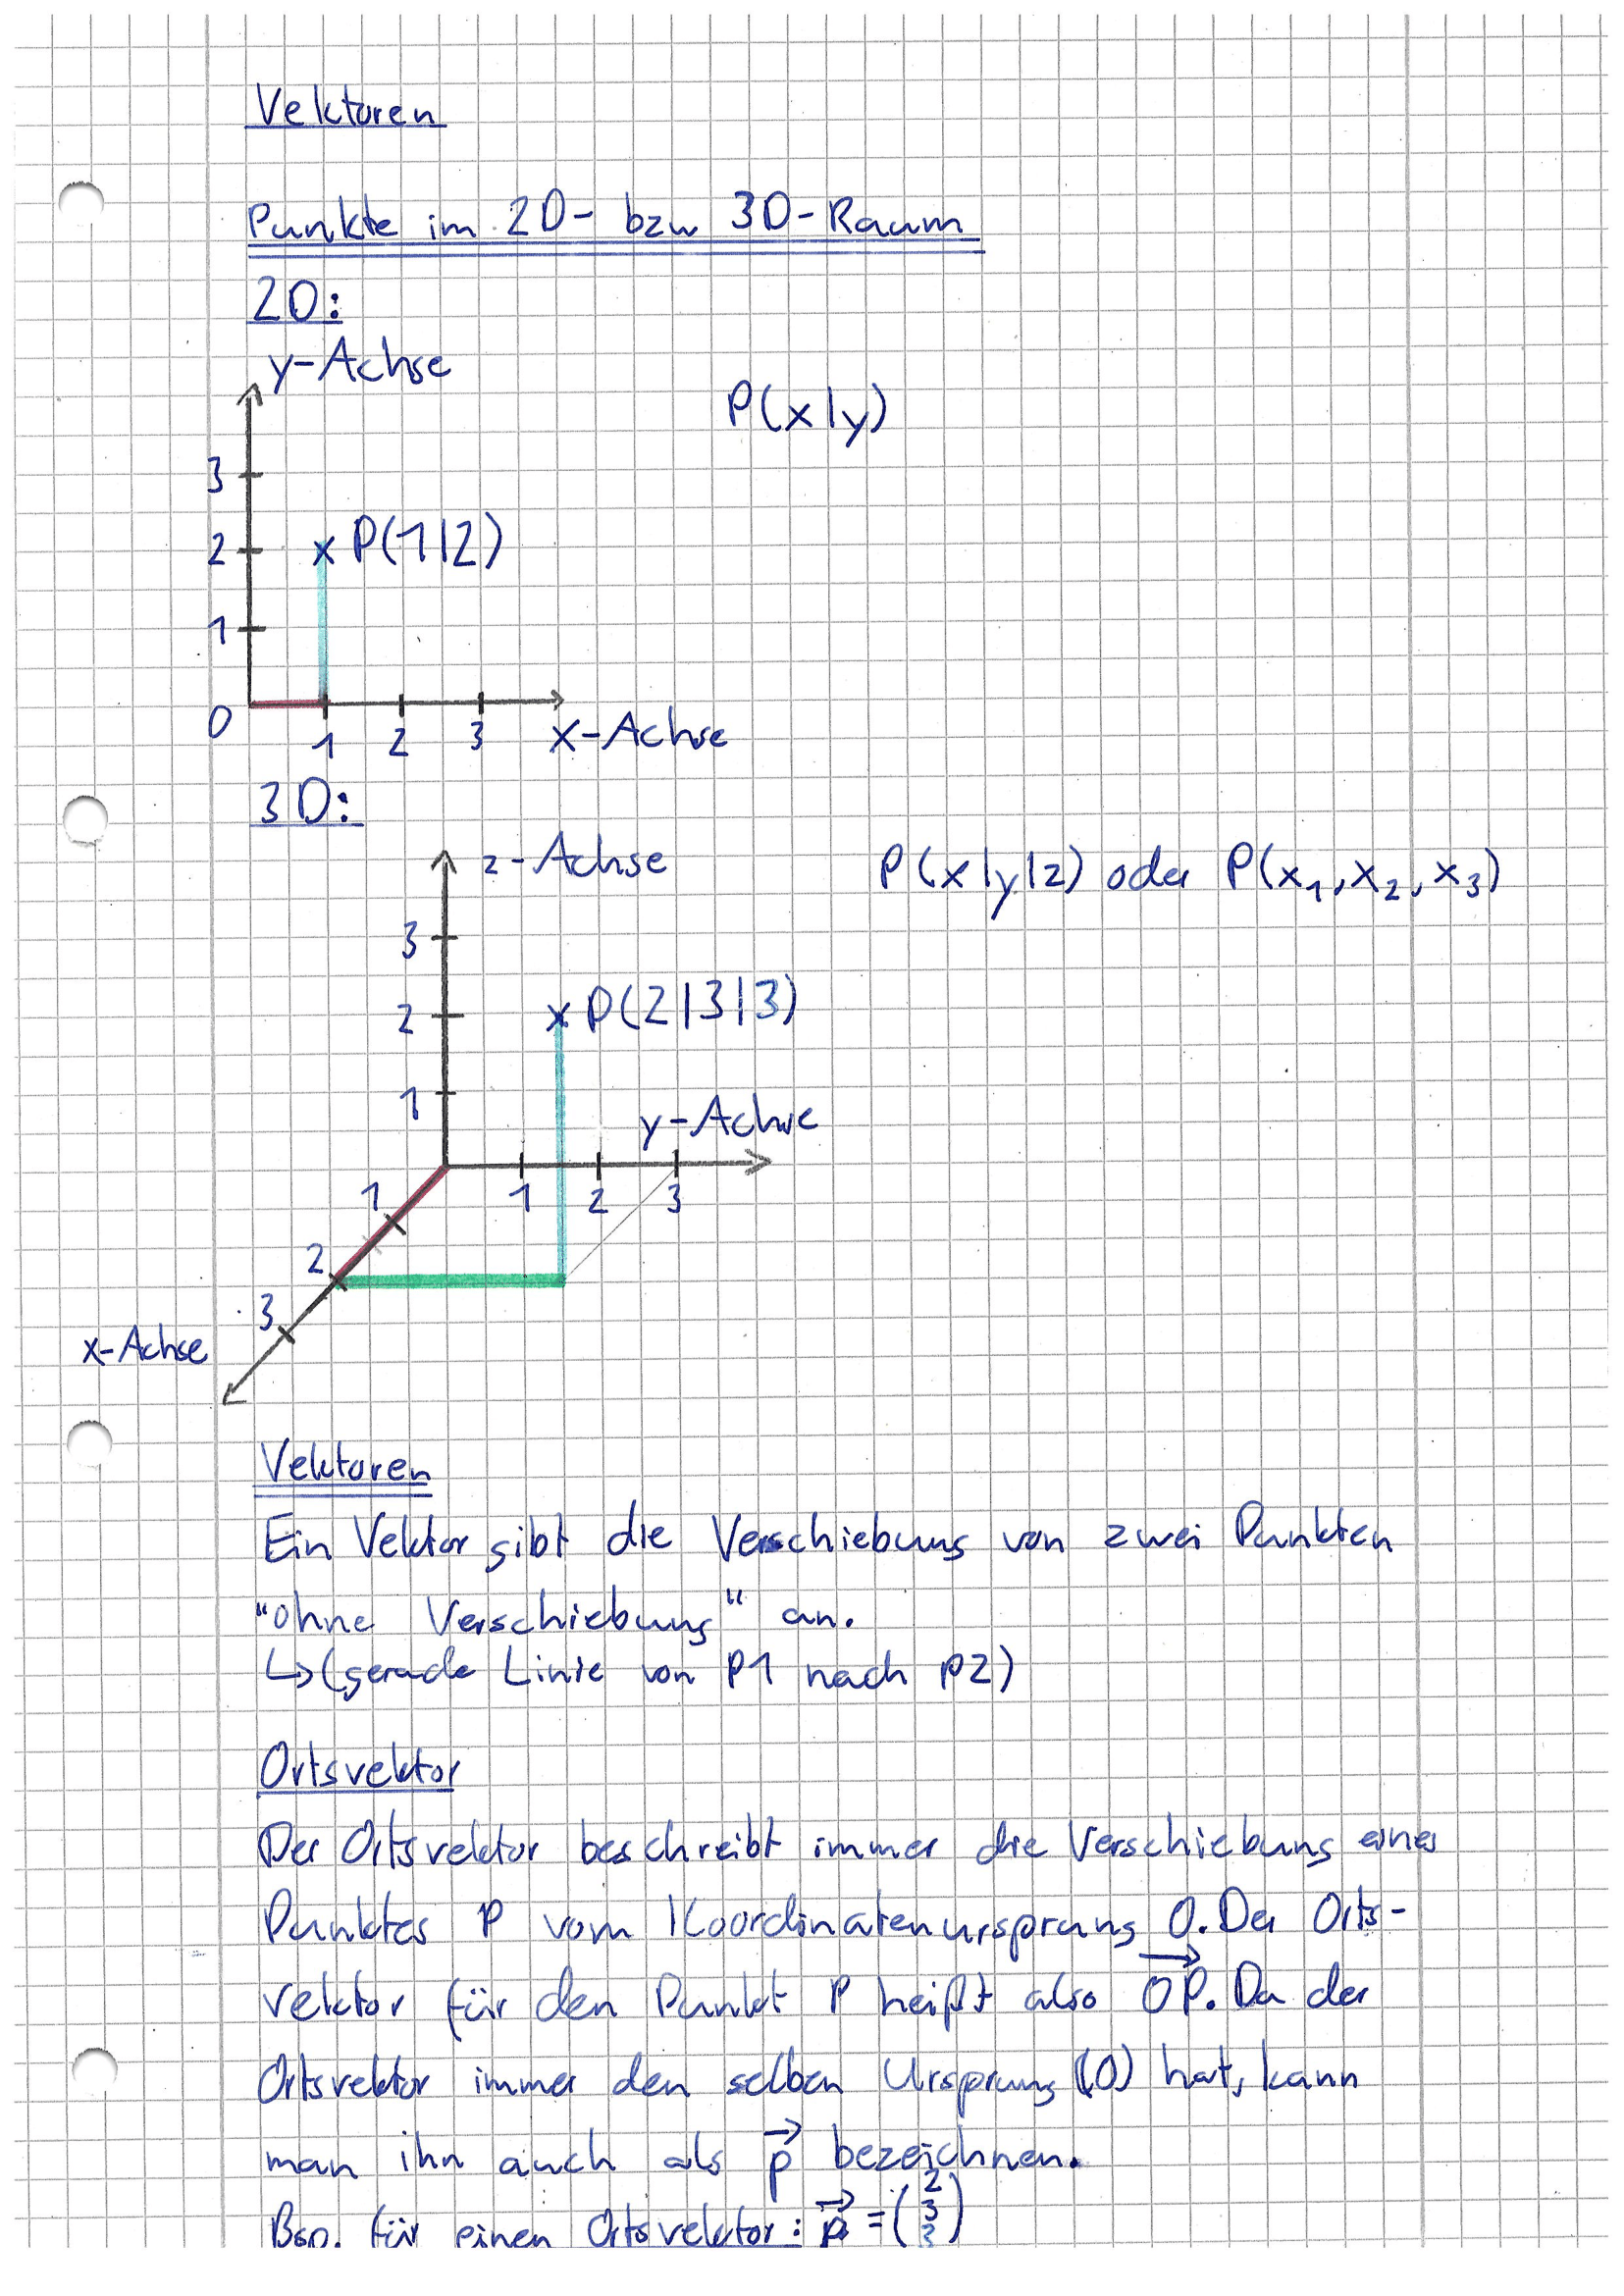 Vektoren
Punkte im 2D- bzw 3D-Raum
2D:
y-Achse
P(x|y)
3
2
P(1|2)
1
0
1 2 3 x-Achse
3D:
z-Achse
P(x|y|z) oder P(x₁,x₂,x₃)
3
2
P(2|3|3)
1
y-Achse
1 2 3
1
2
3
x-Achse
Vektoren
Ein Vektor gibt die Verschiebung von zwei Punkten
"ohne Verschiebung" an.
↳(gerade Linie von P1 nach P2)
Ortsvektor
Der Ortsvektor beschreibt immer die Verschiebung eines
Punktes P vom Koordinatenursprung O. Der Orts-
vektor für den Punkt P heißt also \overrightarrow{OP}. Da der
Ortsvektor immer den selben Ursprung (O) hat, kann
man ihn auch als \vec{p} bezeichnen.
Bsp. für einen Ortsvektor: \vec{p} = \begin{pmatrix} 2 \\ 3 \\ 3 \end{pmatrix}